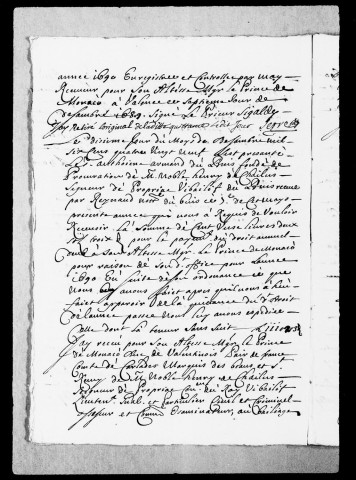 année 1690 Enregistrée et Controllée par moy
Receveur pour Son Altesse Mgr le Prince de
Monaco à Valence ce Septiesme Jour de
Desambre 1689. Signé Le Prieur Sigalde
J'ay Retiré l'original
Le dixiesme Jour du Moys de Desambre mil
Six Cens quatre Vingt neuf S'est presenté
Le Sr Anthoine armand du Buis fondé de
Procuration de Mr Noble henry de Chaylus
Signeur de Propriac Vibailif du Buis receue
par Reynaud not. du buis ce de Ce Moys
presente année qui nous a Requis de Vouloir
Recevoir la Somme de Cent livres deux
pour le payement du droit annuel
deub a Son Altesse Mgr le Prince de Monaco
pour raison de Sond. office pour l'année
1690 En Suite de Son ordonance ce que
Nous luy avons faict apres qu'il nous a heu
faict apparoir de la quictance du d. droit
de l'année passée Nous luy avons expediée
Celle dont la teneur Sans Suit
J'ay receu pour Son Altesse Mgr le Prince
de Monaco Duc de Valentinois Pair de france
Comte de Carlades Marquis des baux et St
Remy de Mr Noble henry de Chaylus
Seigneur de Propriac Coner du Roy Vibailif
Lieutent. Juhl. et Particulier Civil et Criminel
assesseur et Comre Examinateur au bailiage